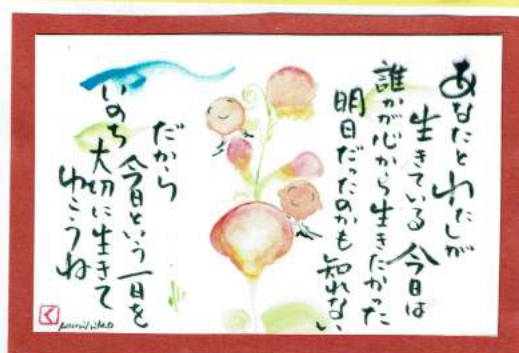 あなたとわたしが
生きている 今日は
誰かが心から生きたかった
明日だったのかも知れない
だから
今日という一日を
いのち 大切に生きて
ゆこうね
く